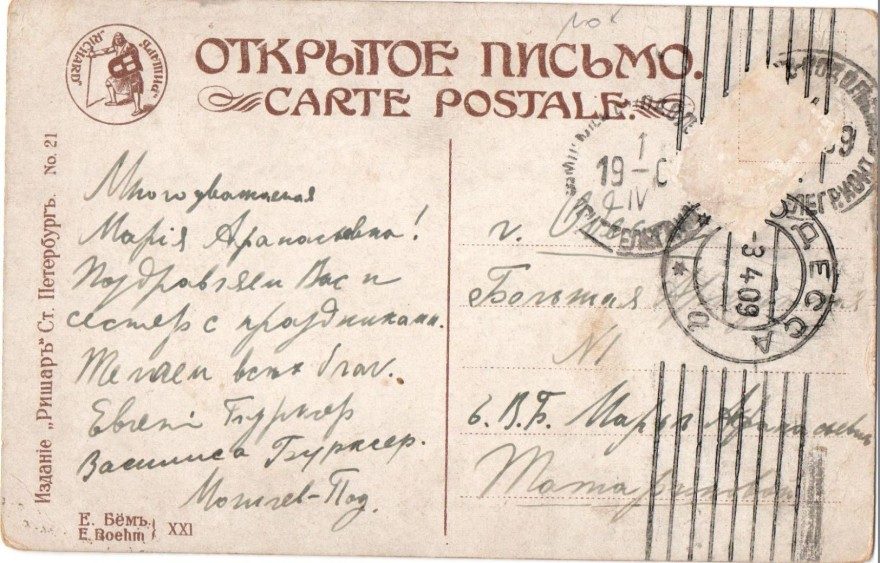 ОТКРЫТОЕ ПИСЬМО.
CARTE POSTALE.
РИШАРЪ
"RICHARD"
Изданіе „Ришаръ“ Ст. Петербургъ. No. 21
Многоуважаемая
Марія Афанасьевна!
Поздравляем Вас и
сестер с праздниками.
Желаем всех благ.
Евгеній Бурксер
Василиса Бурксер.
Е. Бёмъ
E. Boehm
XXI
г. Одесса
Большая
N1
Е. В. Б. Марья Афанасьевна
1
19-0
2 IV
ОДЕССА
-3 4 09